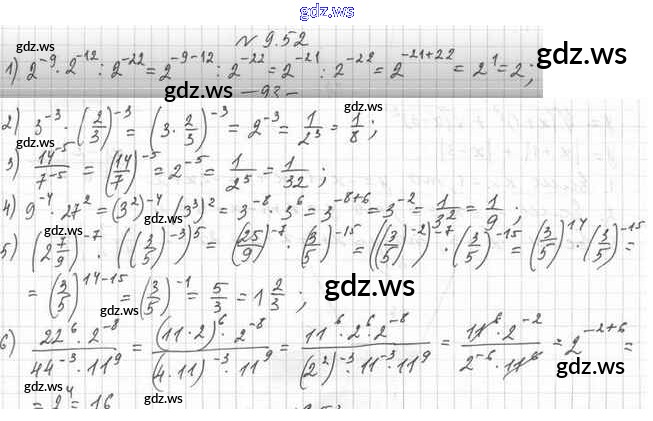 gdz.ws
N 9.52
gdz.ws gdz.ws
1) 2^-9 · 2^-12 : 2^-22 = 2^-9-12 : 2^-22 = 2^-21 : 2^-22 = 2^-21+22 = 2^1 = 2;
gdz.ws
– 92 –
gdz.ws
2) 3^-3 · (2/3)^-3 = (3 · 2/3)^-3 = 2^-3 = 1/2^3 = 1/8;
gdz.ws
3) 14^-5/7^-5 = (14/7)^-5 = 2^-5 = 1/2^5 = 1/32;
4) 9^-4 · 27^2 = (3^2)^-4 · (3^3)^2 = 3^-8 · 3^6 = 3^-8+6 = 3^-2 = 1/3^2 = 1/9;
gdz.ws gdz.ws
5) (2 7/9)^-7 · ((3/5)^-3)^5 = (25/9)^-7 · (3/5)^-15 = ((3/5)^-2)^-7 · (3/5)^-15 = (3/5)^14 · (3/5)^-15 =
= (3/5)^14-15 = (3/5)^-1 = 5/3 = 1 2/3;
gdz.ws
6) 22^6 · 2^-8/44^-3 · 11^9 = (11·2)^6 · 2^-8/(4·11)^-3 · 11^9 = 11^6 · 2^6 · 2^-8/(2^2)^-3 · 11^-3 · 11^9 = 11^6 · 2^-2/2^-6 · 11^6 = 2^-2+6 =
gdz.ws gdz.ws
= 2^4 = 16
gdz.ws